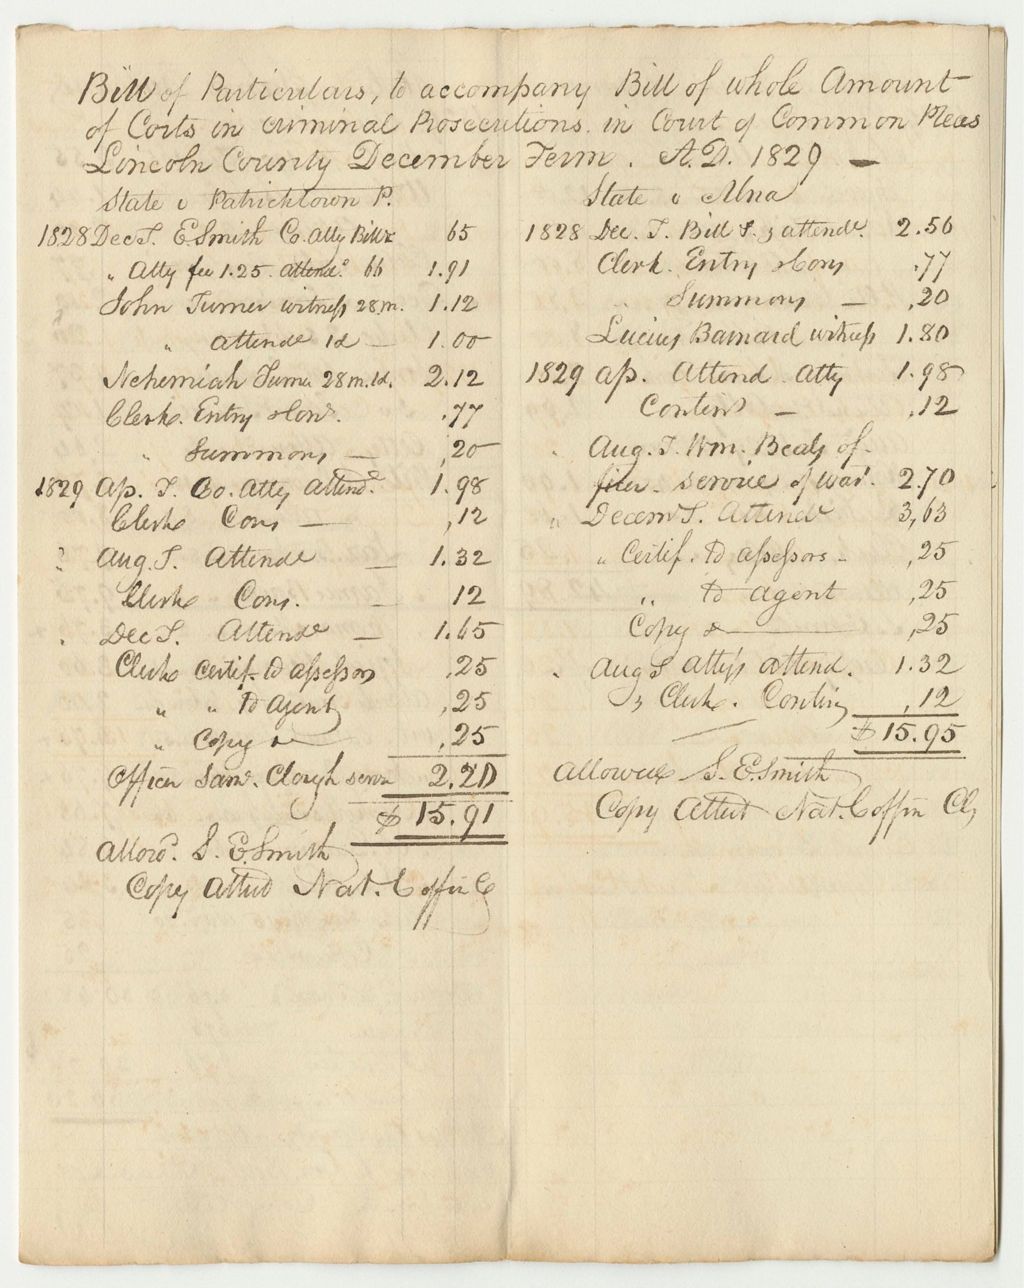 Bill of Particulars, to accompany Bill of whole Amount
of Costs in criminal Prosecutions in Court of Common Pleas
Lincoln County December Term. A.D. 1829 —
State v Patricktown P.
1828 Dec T. E Smith Co. Atty Bill &c 65
" Atty fee 1.25. attendce. 66 1.91
John Turner witness 28 m. 1.12
" attendce 1d — 1.00
Nehemiah Turner 28 m. 1d. 2.12
Clerk. Entry & Con. .77
" Summons — ,20
1829 Ap. T. Co. Atty attendce. 1.98
Clerk Con — ,12
" Aug. T. Attendce — 1.32
Clerk Con. — 12
" Dec T. Attendce — 1.65
Clerk certif. to assessors ,25
" " to agent ,25
" Copy &c — ,25
Officer Saml. Clough serv 2.20
$ 15.91
Allowd. S. E. Smith
Copy Attest Nat. Coffin C
State v Alna
1828 Dec. T. Bill & attendce. 2.56
Clerk. Entry & Con .77
" Summons — ,20
Lucius Barnard witness 1.80
1829 Ap. Attend Atty 1.98
Contind — ,12
" Aug. T. Wm. Beals of-
ficer service of war. 2.70
" Decem. T. Attendce 3,63
" Certif. to assessors - ,25
" to agent ,25
Copy &c — ,25
" Aug T Atty's attend. 1.32
" Clerk. Conting ,12
$ 15.95
Allowed S. E. Smith
Copy Attest Nat. Coffin Clk